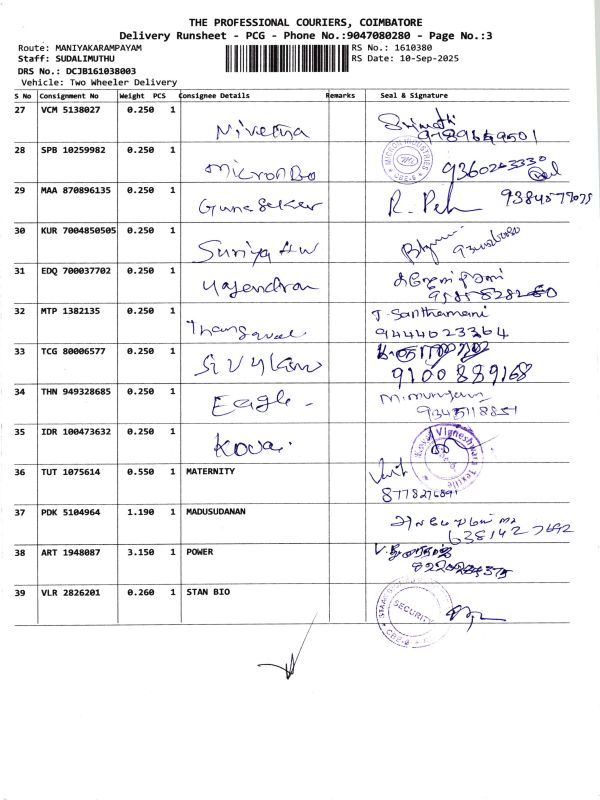 THE PROFESSIONAL COURIERS, COIMBATORE
Delivery Runsheet - PCG - Phone No.:9047080280 - Page No.:3
Route: MANIYAKARAMPAYAM RS No.: 1610380
Staff: SUDALIMUTHU RS Date: 10-Sep-2025
DRS No.: DCJB161038003
Vehicle: Two Wheeler Delivery
S No Consignment No Weight PCS Consignee Details Remarks Seal & Signature
27 VCM 5138027 0.250 1 Nivetha
28 SPB 10259982 0.250 1 Micron Bo 9360263330
MICRON INDUSTRIES
CBE-6
29 MAA 870896135 0.250 1 Gunasekar
30 KUR 7004850505 0.250 1 Suriya
31 EDQ 700037702 0.250 1 Rajendran
32 MTP 1382135 0.250 1 Thangavel J. Santhamani
9444023364
33 TCG 80006577 0.250 1
9100889168
34 THN 949328685 0.250 1 Eagle
35 IDR 100473632 0.250 1 Kovai
Vigneshwara Textile
36 TUT 1075614 0.550 1 MATERNITY
37 PDK 5104964 1.190 1 MADUSUDANAN
638142 7692
38 ART 1948087 3.150 1 POWER
39 VLR 2826201 0.260 1 STAN BIO
SECURITY